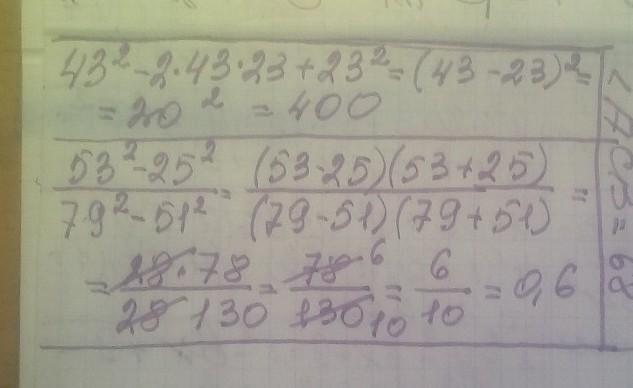 43² - 2·43·23 + 23² = (43 - 23)² =
= 20² = 400
53² - 25² / 79² - 51² = (53-25)(53+25) / (79-51)(79+51) =
= 28·78 / 28 130 = 78 6 / 130 10 = 6/10 = 0,6